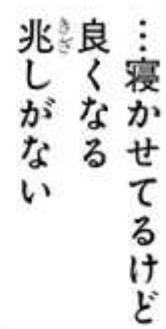 …寝かせてるけど
良くなる
兆しがない